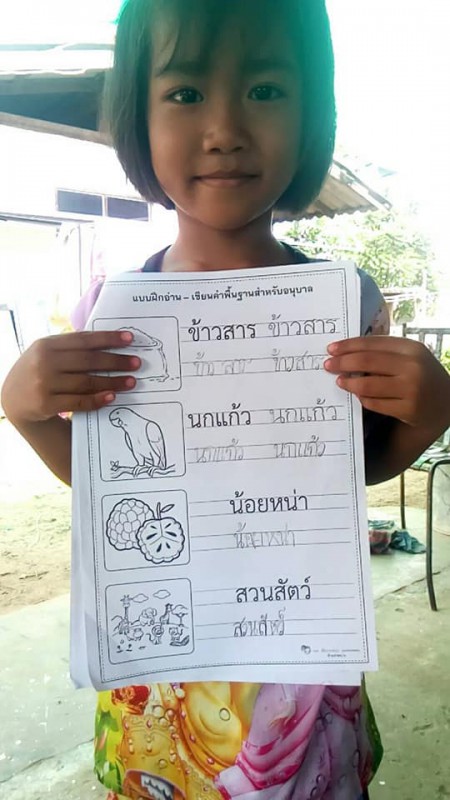 แบบฝึกอ่าน – เขียนคำพื้นฐานสำหรับอนุบาล
ข้าวสาร ข้าวสาร
ข้าวสาร ข้าวสาร
นกแก้ว นกแก้ว
นกแก้ว นกแก้ว
น้อยหน่า
น้อยหน่า
สวนสัตว์
สวนสัตว์